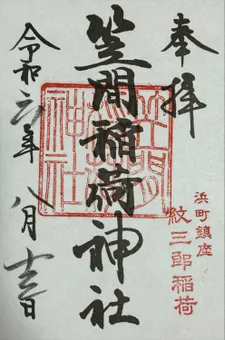 奉拝
浜町鎮座
紋三郎稲荷
笠間稲荷神社
笠間
稲荷
神社
令和六年
八月